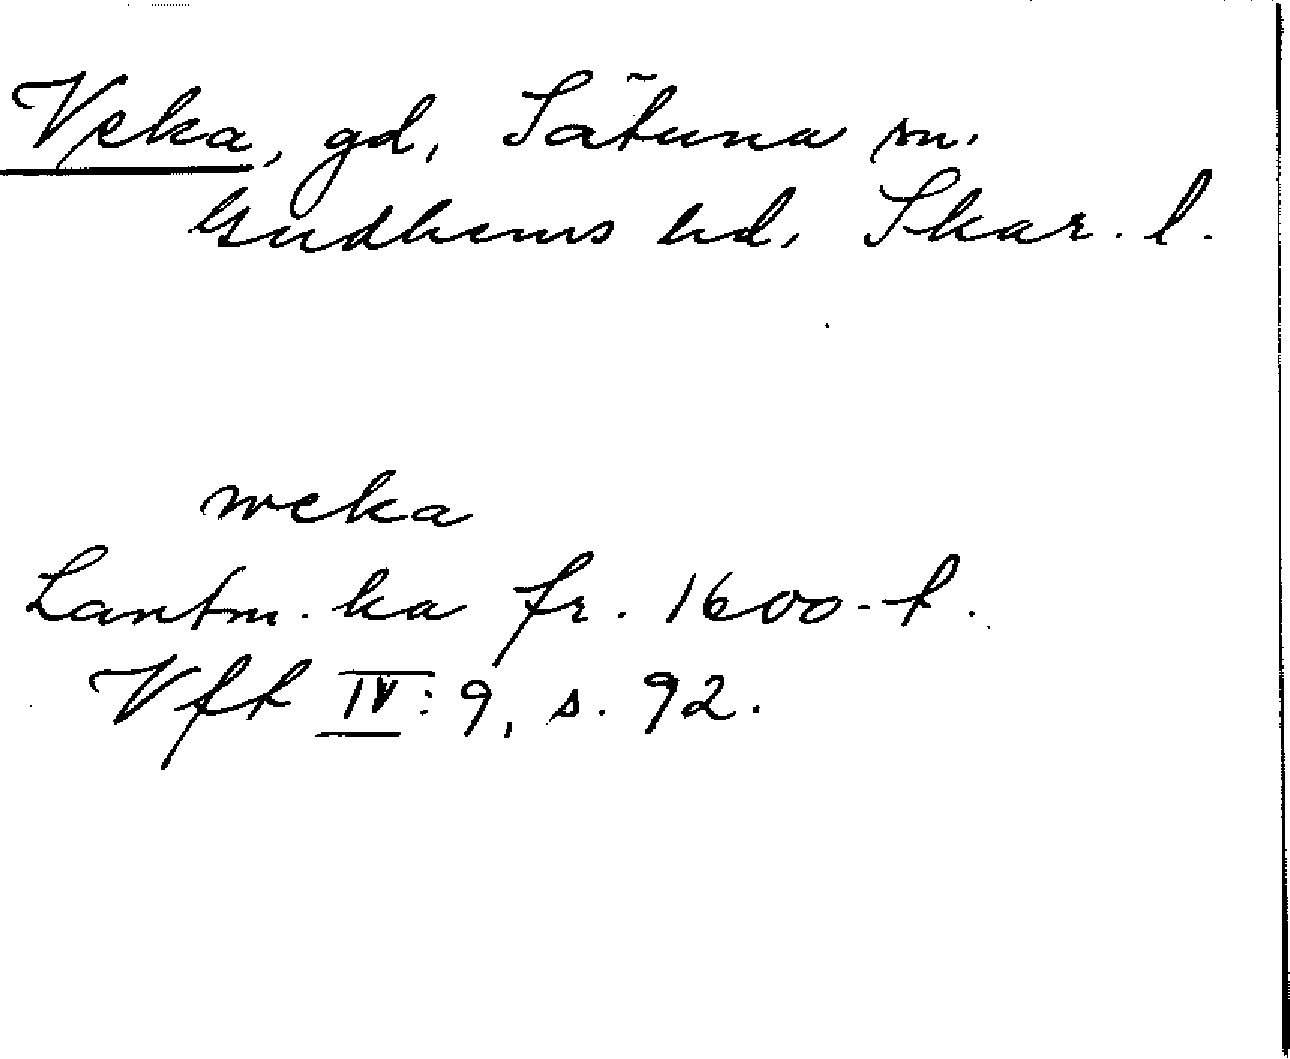 Veka, gd, Sätuna sn.
Gudhems hd, Skar. l.
weka
Lantm. ka fr. 1600-t.
Vft IV: 9, s. 92.